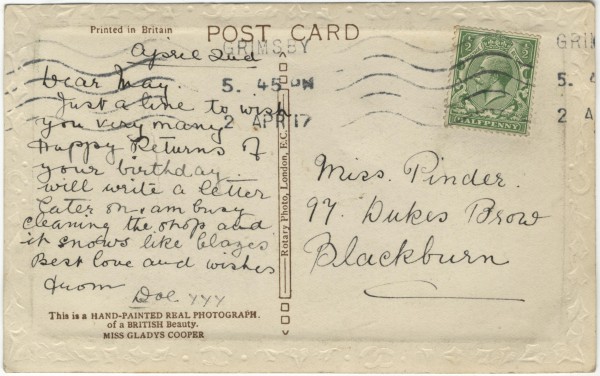 Printed in Britain
POST CARD
April 2nd
GRIMSBY
5. 45 PM
2 APR 17
GRI
5. 4
2 A
HALFPENNY
Dear May.
Just a line to wish
you very many
Happy Returns of
your birthday
will write a letter
later on. am busy
cleaning the shop and
it snows like blazes
Best love and wishes
from
Doe. yyy
This is a HAND-PAINTED REAL PHOTOGRAPH.
of a BRITISH Beauty.
MISS GLADYS COOPER
Rotary Photo, London, E.C.
Miss. Pinder.
97. Dukes Brow
Blackburn